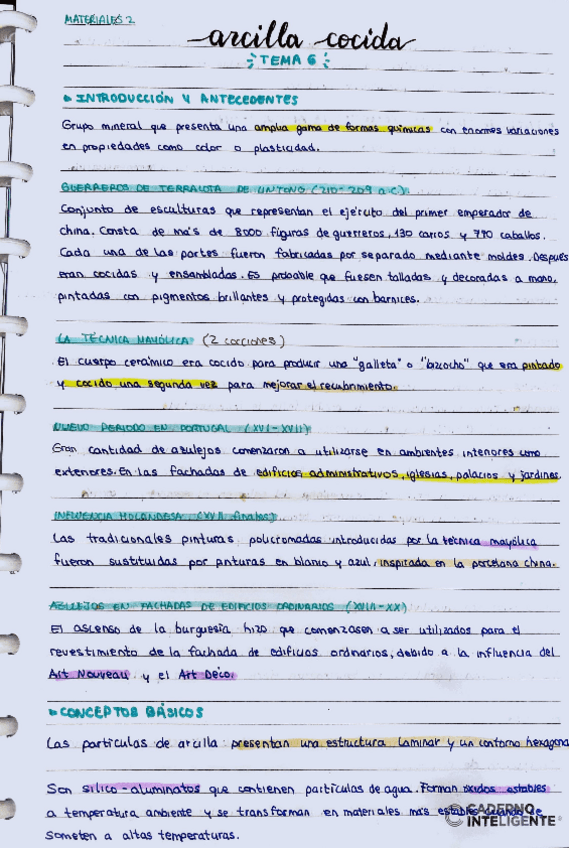 MATERIALES 2
arcilla cocida
TEMA 6
INTRODUCCIÓN Y ANTECEDENTES
Grupo mineral que presenta una amplia gama de formas químicas con enormes variaciones
en propiedades como color o plasticidad.
GUERREROS DE TERRACOTA DE LINTONG (210-209 a.C):
Conjunto de esculturas que representan el ejército del primer emperador de
china. Consta de más de 8000 figuras de guerreros, 130 carros y 770 caballos.
Cada una de las partes fueron fabricadas por separado mediante moldes. Después
eran cocidas y ensambladas. Es probable que fuesen talladas y decoradas a mano,
pintadas con pigmentos brillantes y protegidas con barnices.
LA TÉCNICA MAYÓLICA (2 cocciones)
El cuerpo cerámico era cocido para producir una "galleta" o "bizcocho" que era pintado
y cocido una segunda vez para mejorar el recubrimiento.
NUEVO PERIODO EN PORTUGAL (XVI-XVII)
Gran cantidad de azulejos comenzaron a utilizarse en ambientes interiores como
exteriores. En las fachadas de edificios administrativos, iglesias, palacios y jardines.
INFLUENCIA HOLANDESA (XVII finales)
Las tradicionales pinturas policromadas introducidas por la técnica mayólica
fueron sustituidas por pinturas en blanco y azul, inspirada en la porcelana china.
AZULEJOS EN FACHADAS DE EDIFICIOS ORDINARIOS (XVIII-XX)
El ascenso de la burguesía hizo que comenzasen a ser utilizados para el
revestimiento de la fachada de edificios ordinarios, debido a la influencia del
Art Nouveau y el Art Déco.
CONCEPTOS BÁSICOS
Las partículas de arcilla presentan una estructura laminar y un contorno hexagona
Son silico-aluminatos que contienen partículas de agua. Forman óxidos estables
a temperatura ambiente y se transforman en materiales más estables cuando se
someten a altas temperaturas.
CADERNO
INTELIGENTE